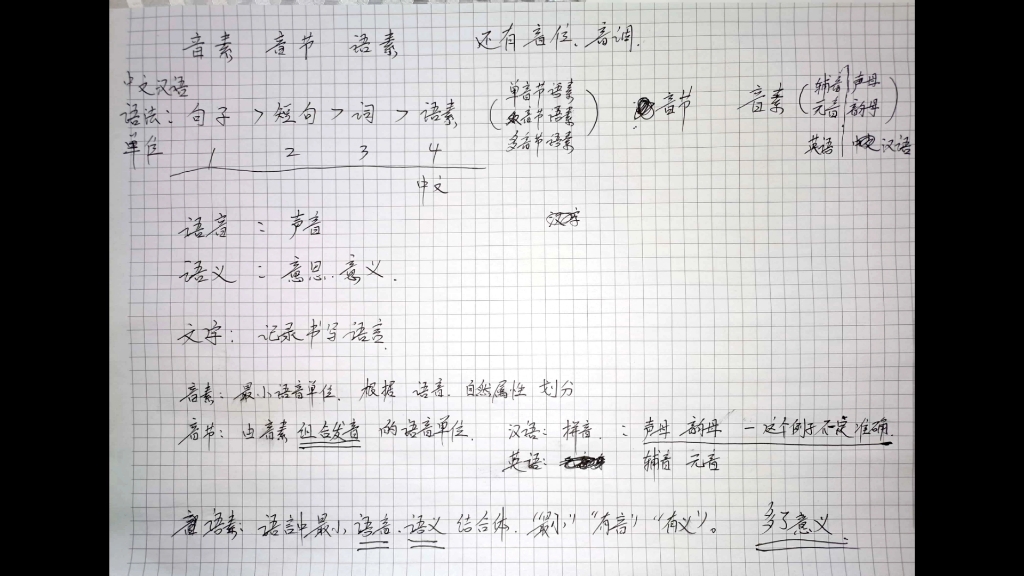 音素 音节 语素 还有音位、音调.
中文汉语
语法: 句子 > 短句 > 词 > 语素 (单音节语素 双音节语素 多音节语素) 音节 音素 (辅音 声母 元音 韵母)
单位 1 2 3 4 英语 汉语
中文
语音 : 声音
语义 : 意思. 意义.
文字: 记录书写语言.
音素: 最小语音单位. 根据 语音. 自然属性 划分
音节: 由音素组合发音 的语音单位. 汉语: 拼音 : 声母 韵母 — 这个例子不一定准确.
英语: 辅音 元音
语素: 语言中最小 语音、语义 结合体. "最小" "有音" "有义"。 多了意义.